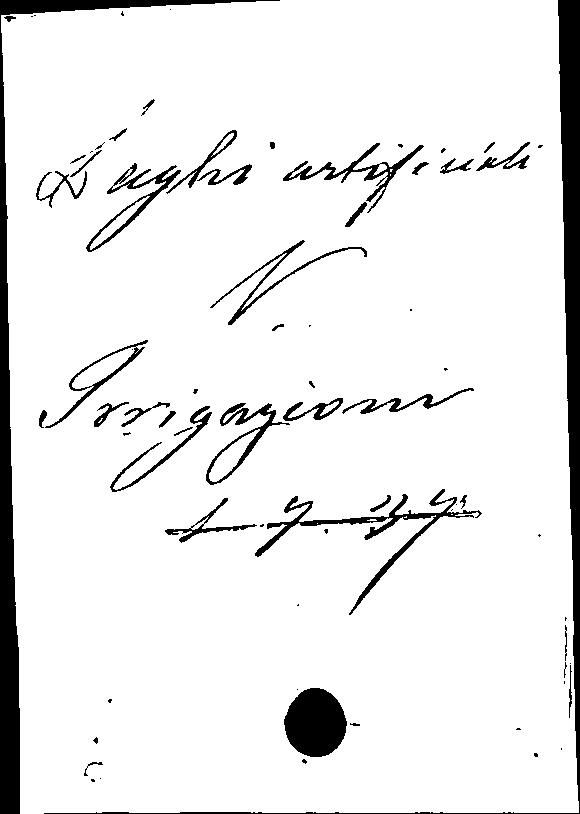 Laghi artificiali
V.
Irrigazioni